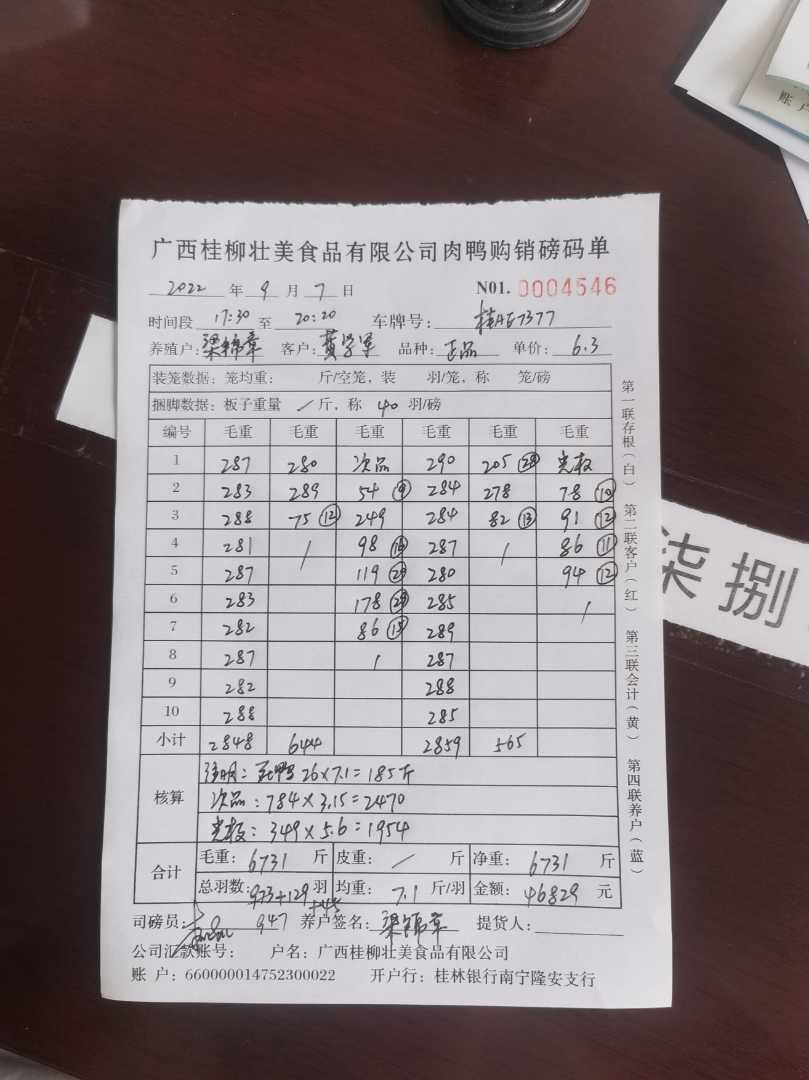 账 户
广西桂柳壮美食品有限公司肉鸭购销磅码单
2022 年 9 月 7 日 N01. 0004546
时间段 17:30 至 20:20 车牌号: 桂AE7377
养殖户: 梁锦章 客户: 黄学军 品种: 正品 单价: 6.3
装笼数据: 笼均重: 斤/空笼, 装 羽/笼, 称 笼/磅
捆脚数据: 板子重量 / 斤, 称 40 羽/磅
编号 毛重 毛重 毛重 毛重 毛重 毛重
1 287 280 次品 290 205 光板
2 283 289 54 ⑨ 284 278 78 ⑩
3 288 75 ⑫ 249 284 82 ⑬ 91 ⑫
4 281 / 98 ⑯ 287 / 86 ⑪
5 287 119 280 94 ⑫
6 283 178 285 /
7 282 86 ⑮ 289
8 287 / 287
9 282 288
10 288 285
小计 2848 644 2859 565
核算
注明: 死鸭 26×7.1=185斤
次品: 784×3.15=2470
光板: 349×5.6=1954
合计
毛重: 6731 斤 皮重: / 斤 净重: 6731 斤
总羽数: 973+129 羽 均重: 7.1 斤/羽 金额: 46829 元
+45
司磅员: 947 养户签名: 梁锦章 提货人:
公司汇款账号: 户名: 广西桂柳壮美食品有限公司
账 户: 660000014752300022 开户行: 桂林银行南宁隆安支行
第一联存根(白) 第二联客户(红) 第三联会计(黄) 第四联养户(蓝)
柒 捌